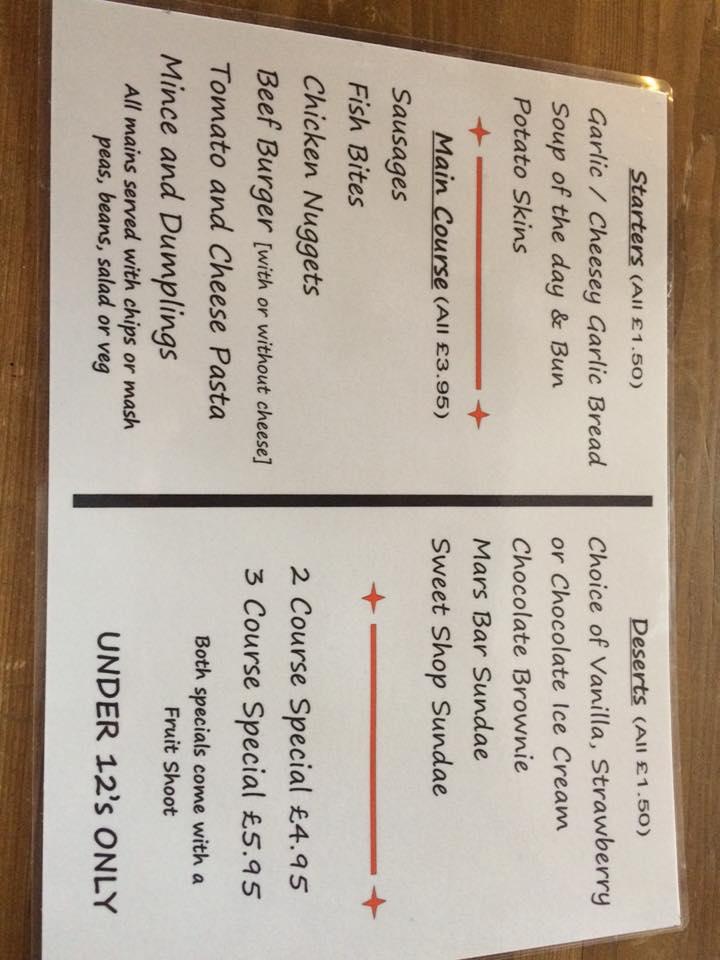 Starters (All £1.50)
Garlic / Cheesey Garlic Bread
Soup of the day & Bun
Potato Skins
Main Course (All £3.95)
Sausages
Fish Bites
Chicken Nuggets
Beef Burger [with or without cheese]
Tomato and Cheese Pasta
Mince and Dumplings
All mains served with chips or mash
peas, beans, salad or veg
Deserts (All £1.50)
Choice of Vanilla, Strawberry
or Chocolate Ice Cream
Chocolate Brownie
Mars Bar Sundae
Sweet Shop Sundae
2 Course Special £4.95
3 Course Special £5.95
Both specials come with a
Fruit Shoot
UNDER 12's ONLY